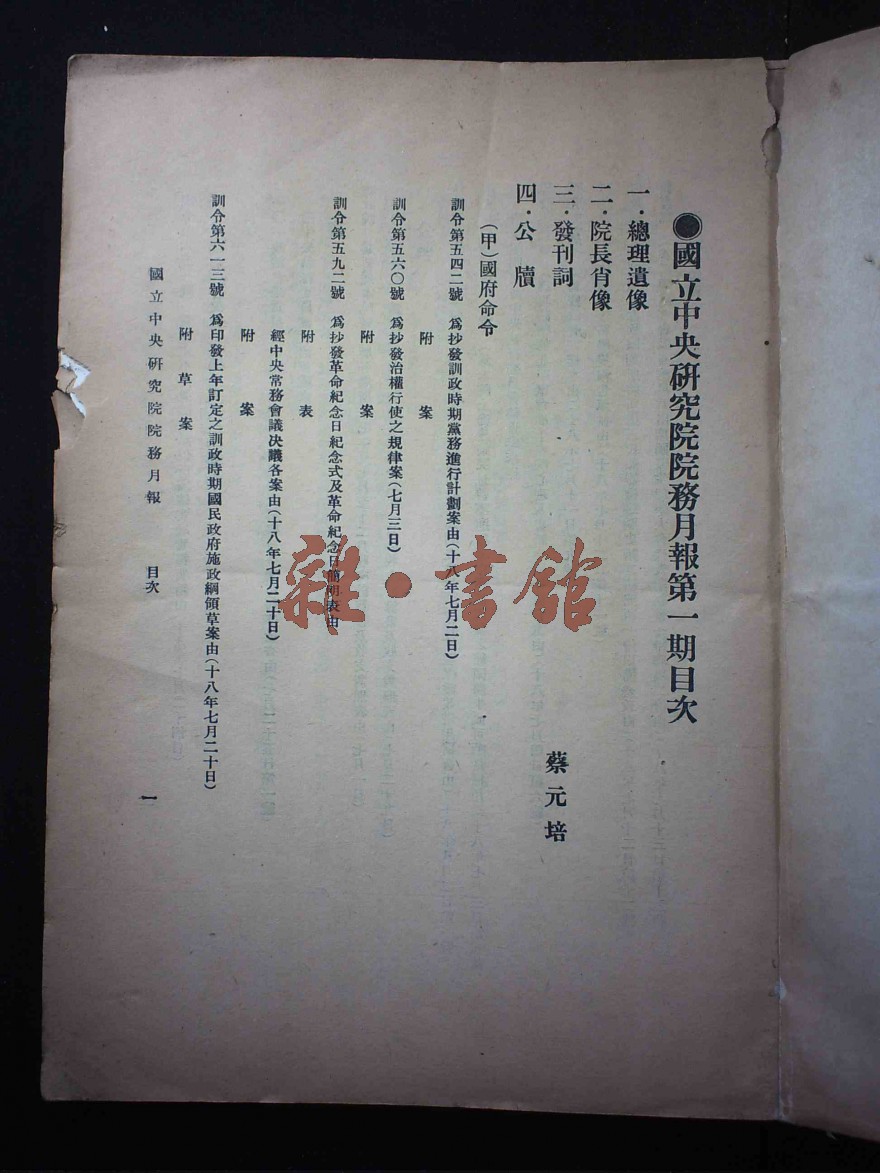 ●國立中央研究院院務月報第一期目次
一．總理遺像
二．院長肖像
三．發刊詞 蔡元培
四．公牘
(甲)國府命令
訓令第五四二號 爲抄發訓政時期黨務進行計劃案由(十八年七月二日)
附案
訓令第五六〇號 爲抄發治權行使之規律案(七月三日)
附案
訓令第五九二號 爲抄發革命紀念日紀念式及革命紀念日簡明表由
附表
經中央常務會議決議各案由(十八年七月二十日)
附案
訓令第六一三號 爲印發上年訂定之訓政時期國民政府施政綱領草案由(十八年七月二十日)
附草案
國立中央研究院院務月報 目次 一
雜·書館